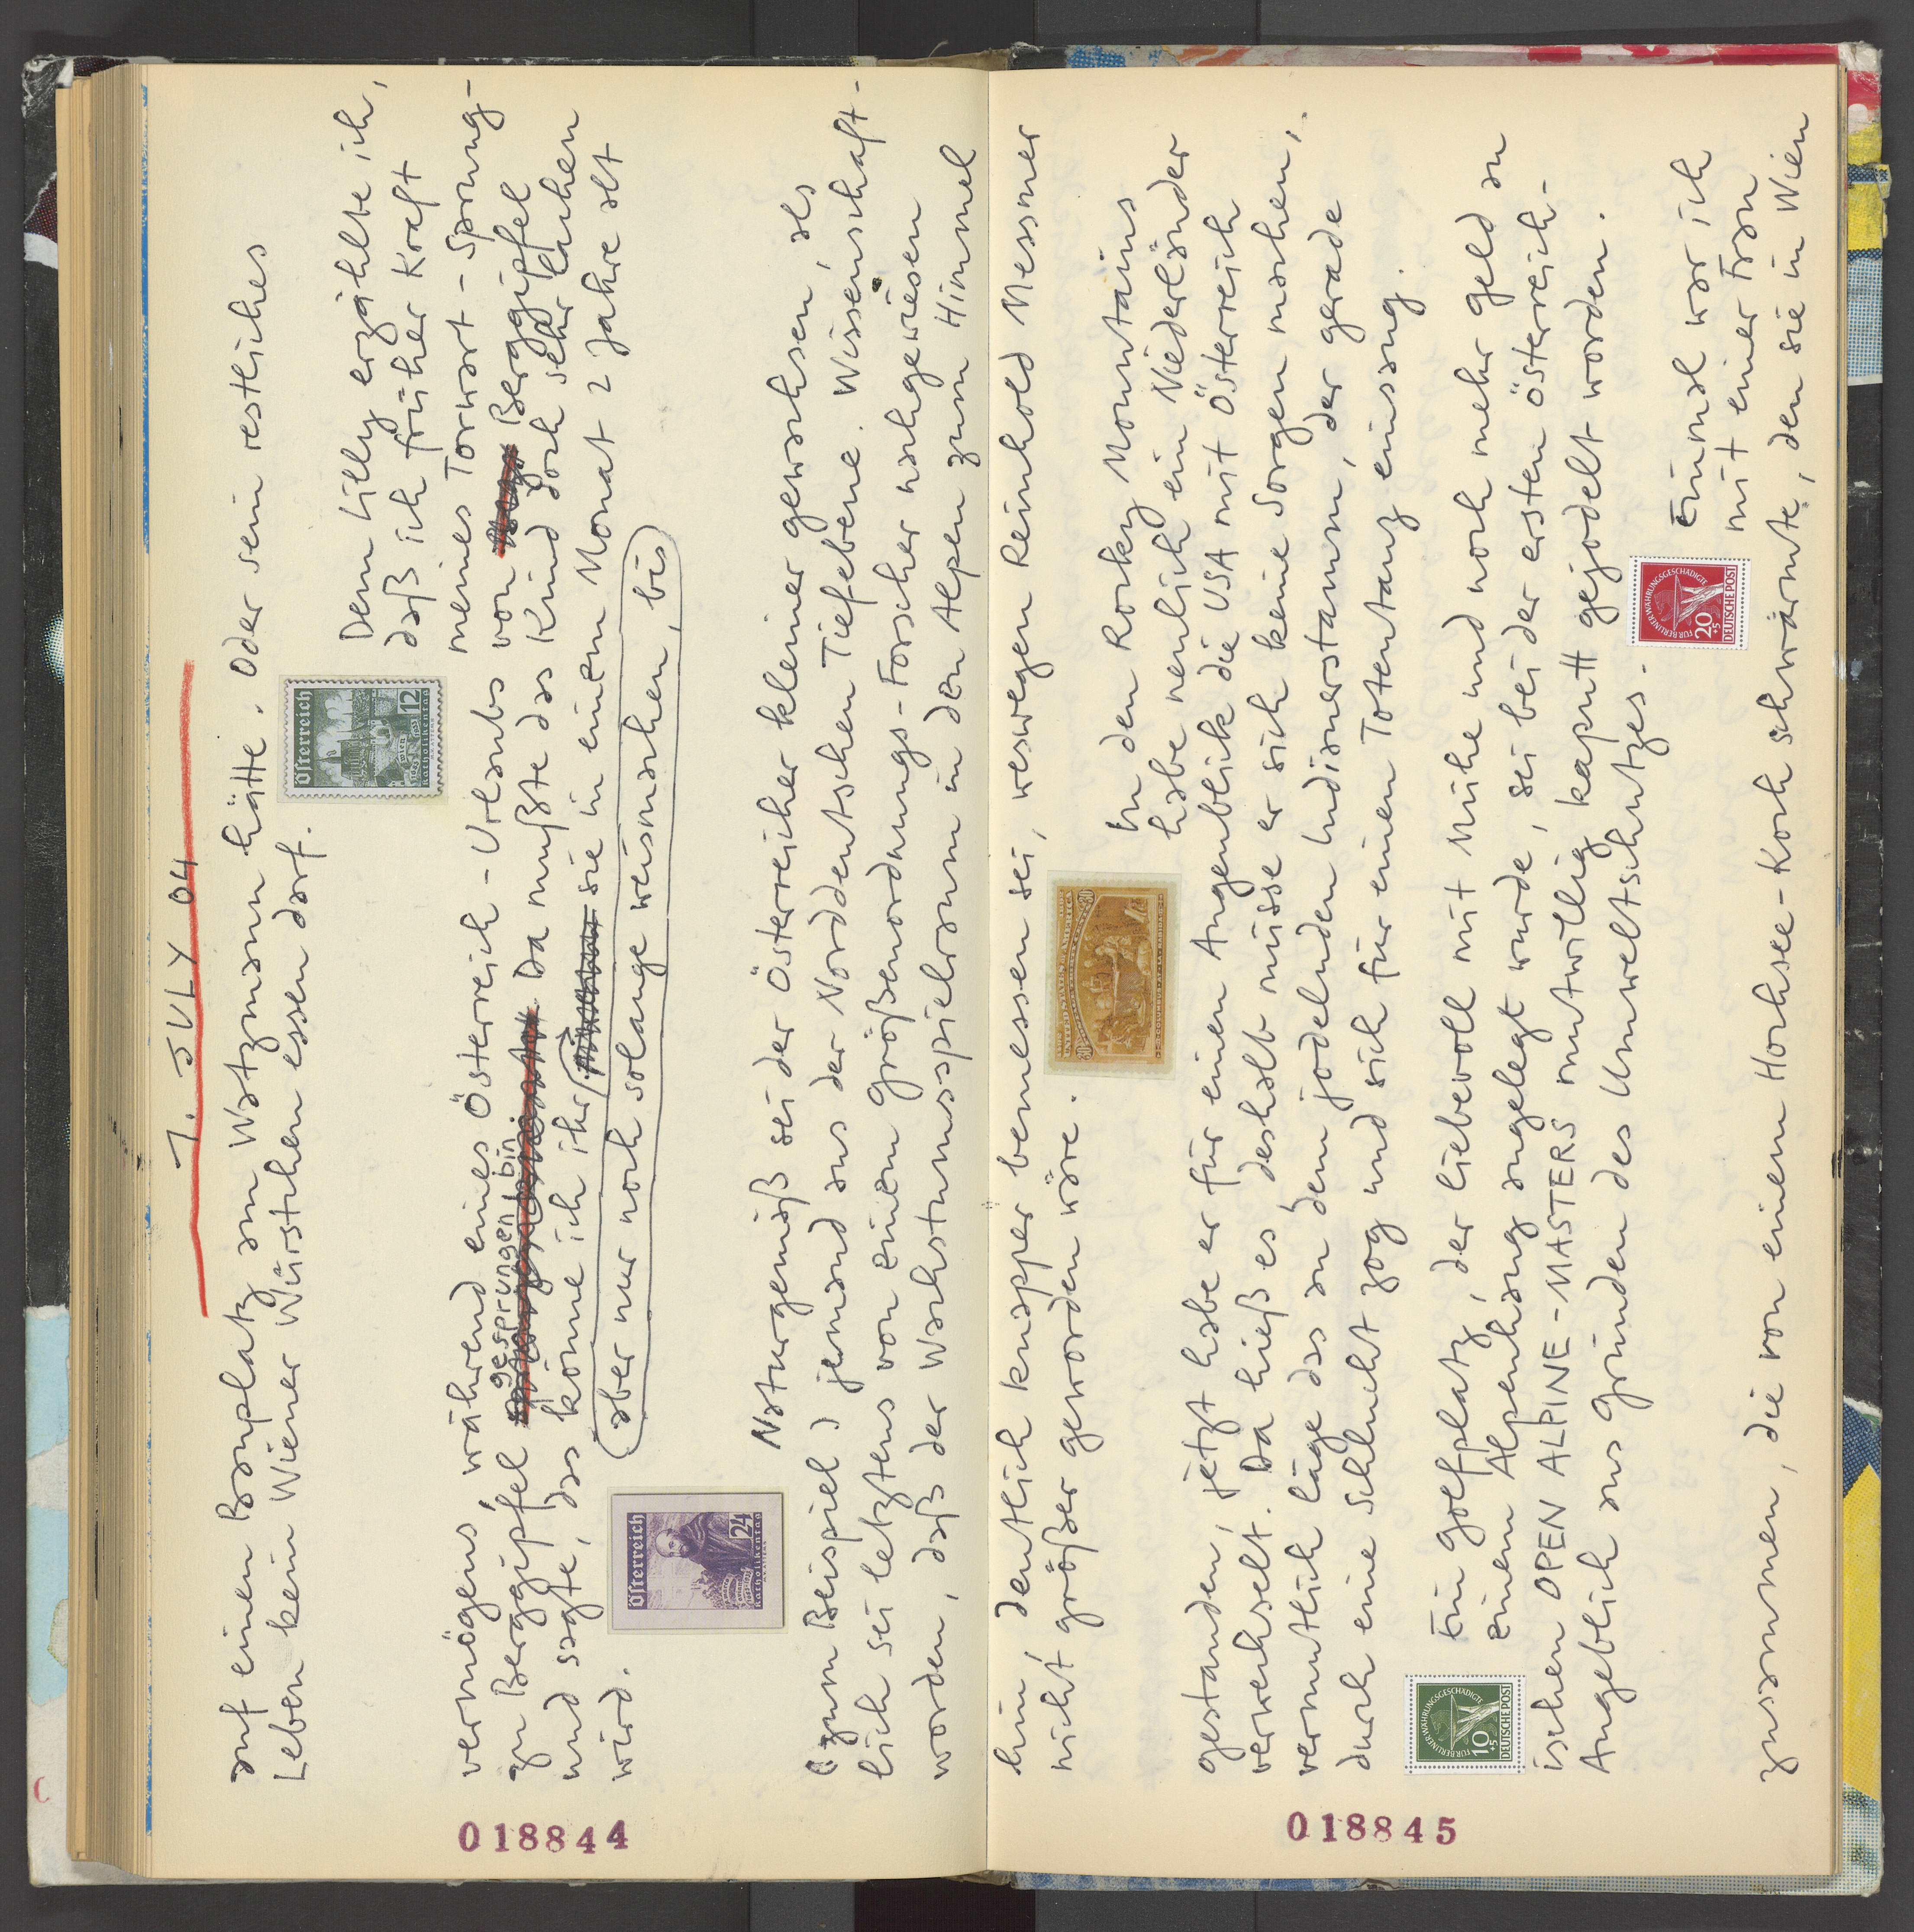 7. JULY 04
auf einen Bauplatz am Watzmann hätte. Oder sein restliches
Leben kein Wiener Würstchen essen darf.
Österreich
12
Wien
Katholikentag
Dem Lilly erzählte ich,
daß ich früher kraft
meines Torwart-Sprung-
vermögens, während eines Österreich-Urlaubs von Berggipfel
zu Berggipfel gesprungen bin. Da mußte das Kind doch sehr lachen
und sagte, das könne ich ihr sie in einem Monat 2 Jahre alt
(aber nur noch solange weismachen, bis)
wird.
Österreich
24
Katholikentag
Naturgemäß sei der Österreicher kleiner gewachsen, als
(zum Beispiel) jemand aus der Norddeutschen Tiefebene. Wissenschaft-
lich sei letztens von einem Größenordnungs-Forscher nachgewiesen
worden, daß der Wachstumsspielraum in den Alpen zum Himmel
018844
hin, deutlich knapper bemessen sei, weswegen Reinhold Messner
nicht größer geworden wäre.
UNITED STATES OF AMERICA
30
30
COLUMBUS AT LA RABIDA
In den Rocky Mountains
habe neulich ein Niederländer
gestanden, jetzt habe er für einen Augenblick die USA mit Österreich
verwechselt. Da hieß es, deshalb müsse er sich keine Sorgen machen,
vermutlich läge das an dem jodelnden Indianerstamm, der gerade
durch eine Schlucht zog und sich für einen Totentanz einsang.
FÜR BERLINER WÄHRUNGSGESCHÄDIGTE
10
+5
DEUTSCHE POST
Ein Golfplatz, der liebevoll mit Mühe und noch mehr Geld an
einem Alpenhang angelegt wurde, sei bei der ersten österreich-
ischen OPEN ALPINE-MASTERS mutwillig kaputt gejodelt worden.
Angeblich aus Gründen des Umweltschutzes.
FÜR BERLINER WÄHRUNGSGESCHÄDIGTE
20
+5
DEUTSCHE POST
Einmal war ich
mit einer Frau
zusammen, die von einem Hochsee-Koch schwärmte, den sie in Wien
018845